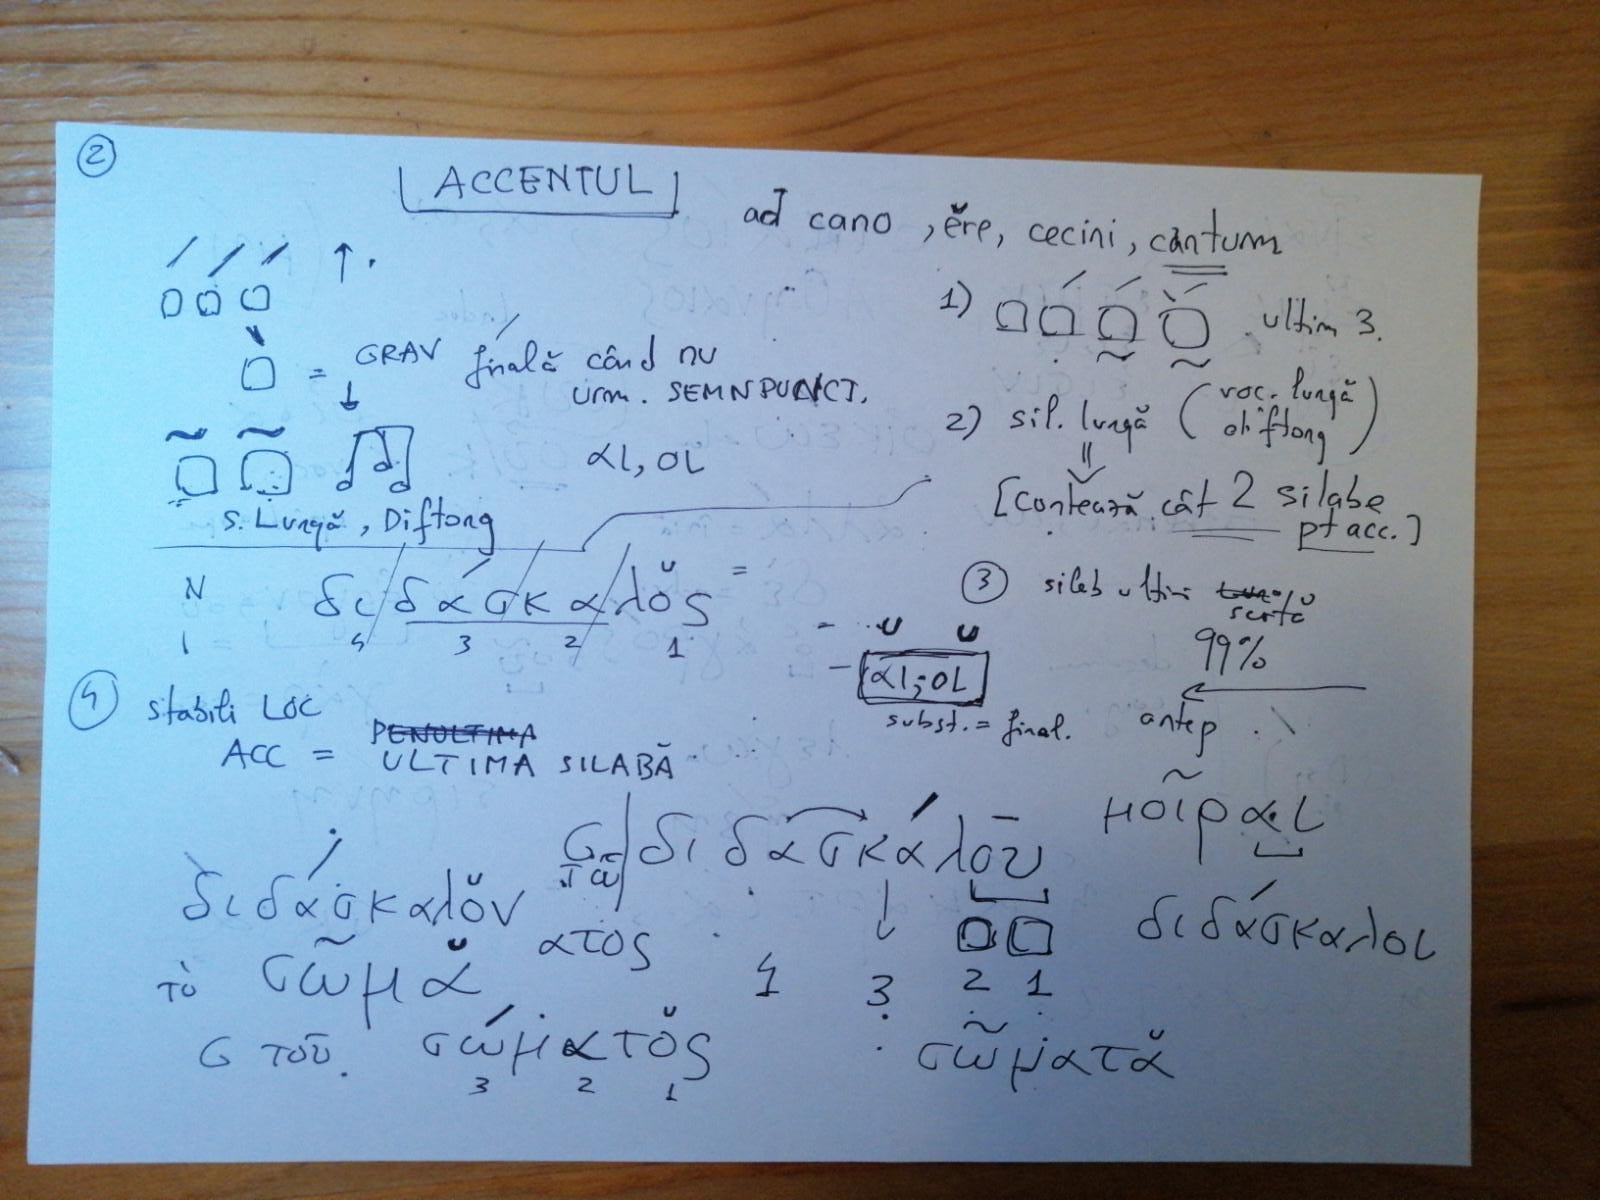 2
ACCENTUL
ad cano, ĕre, cecini, cantum
GRAV finală când nu
urm. SEMN PUNCT.
αι, οι
s. Lungă, Diftong
1) ultim 3.
2) sil. lungă (voc. lungă
diftong)
[Contează cât 2 silabe
pt acc.]
N διδάσκαλο̆ς =
4 3 2 1
3
99%
αι, οι
subst. = final.
antep.
4 stabili LOC
ACC = PENULTIMA
ULTIMA SILABĂ
μοῖραι
G διδασκάλου
διδάσκαλο̆ν
ατος
4 3 2 1
διδάσκαλοι
τὸ σῶμᾰ
G τοῦ σώματο̆ς
3 2 1
σῶματᾰ